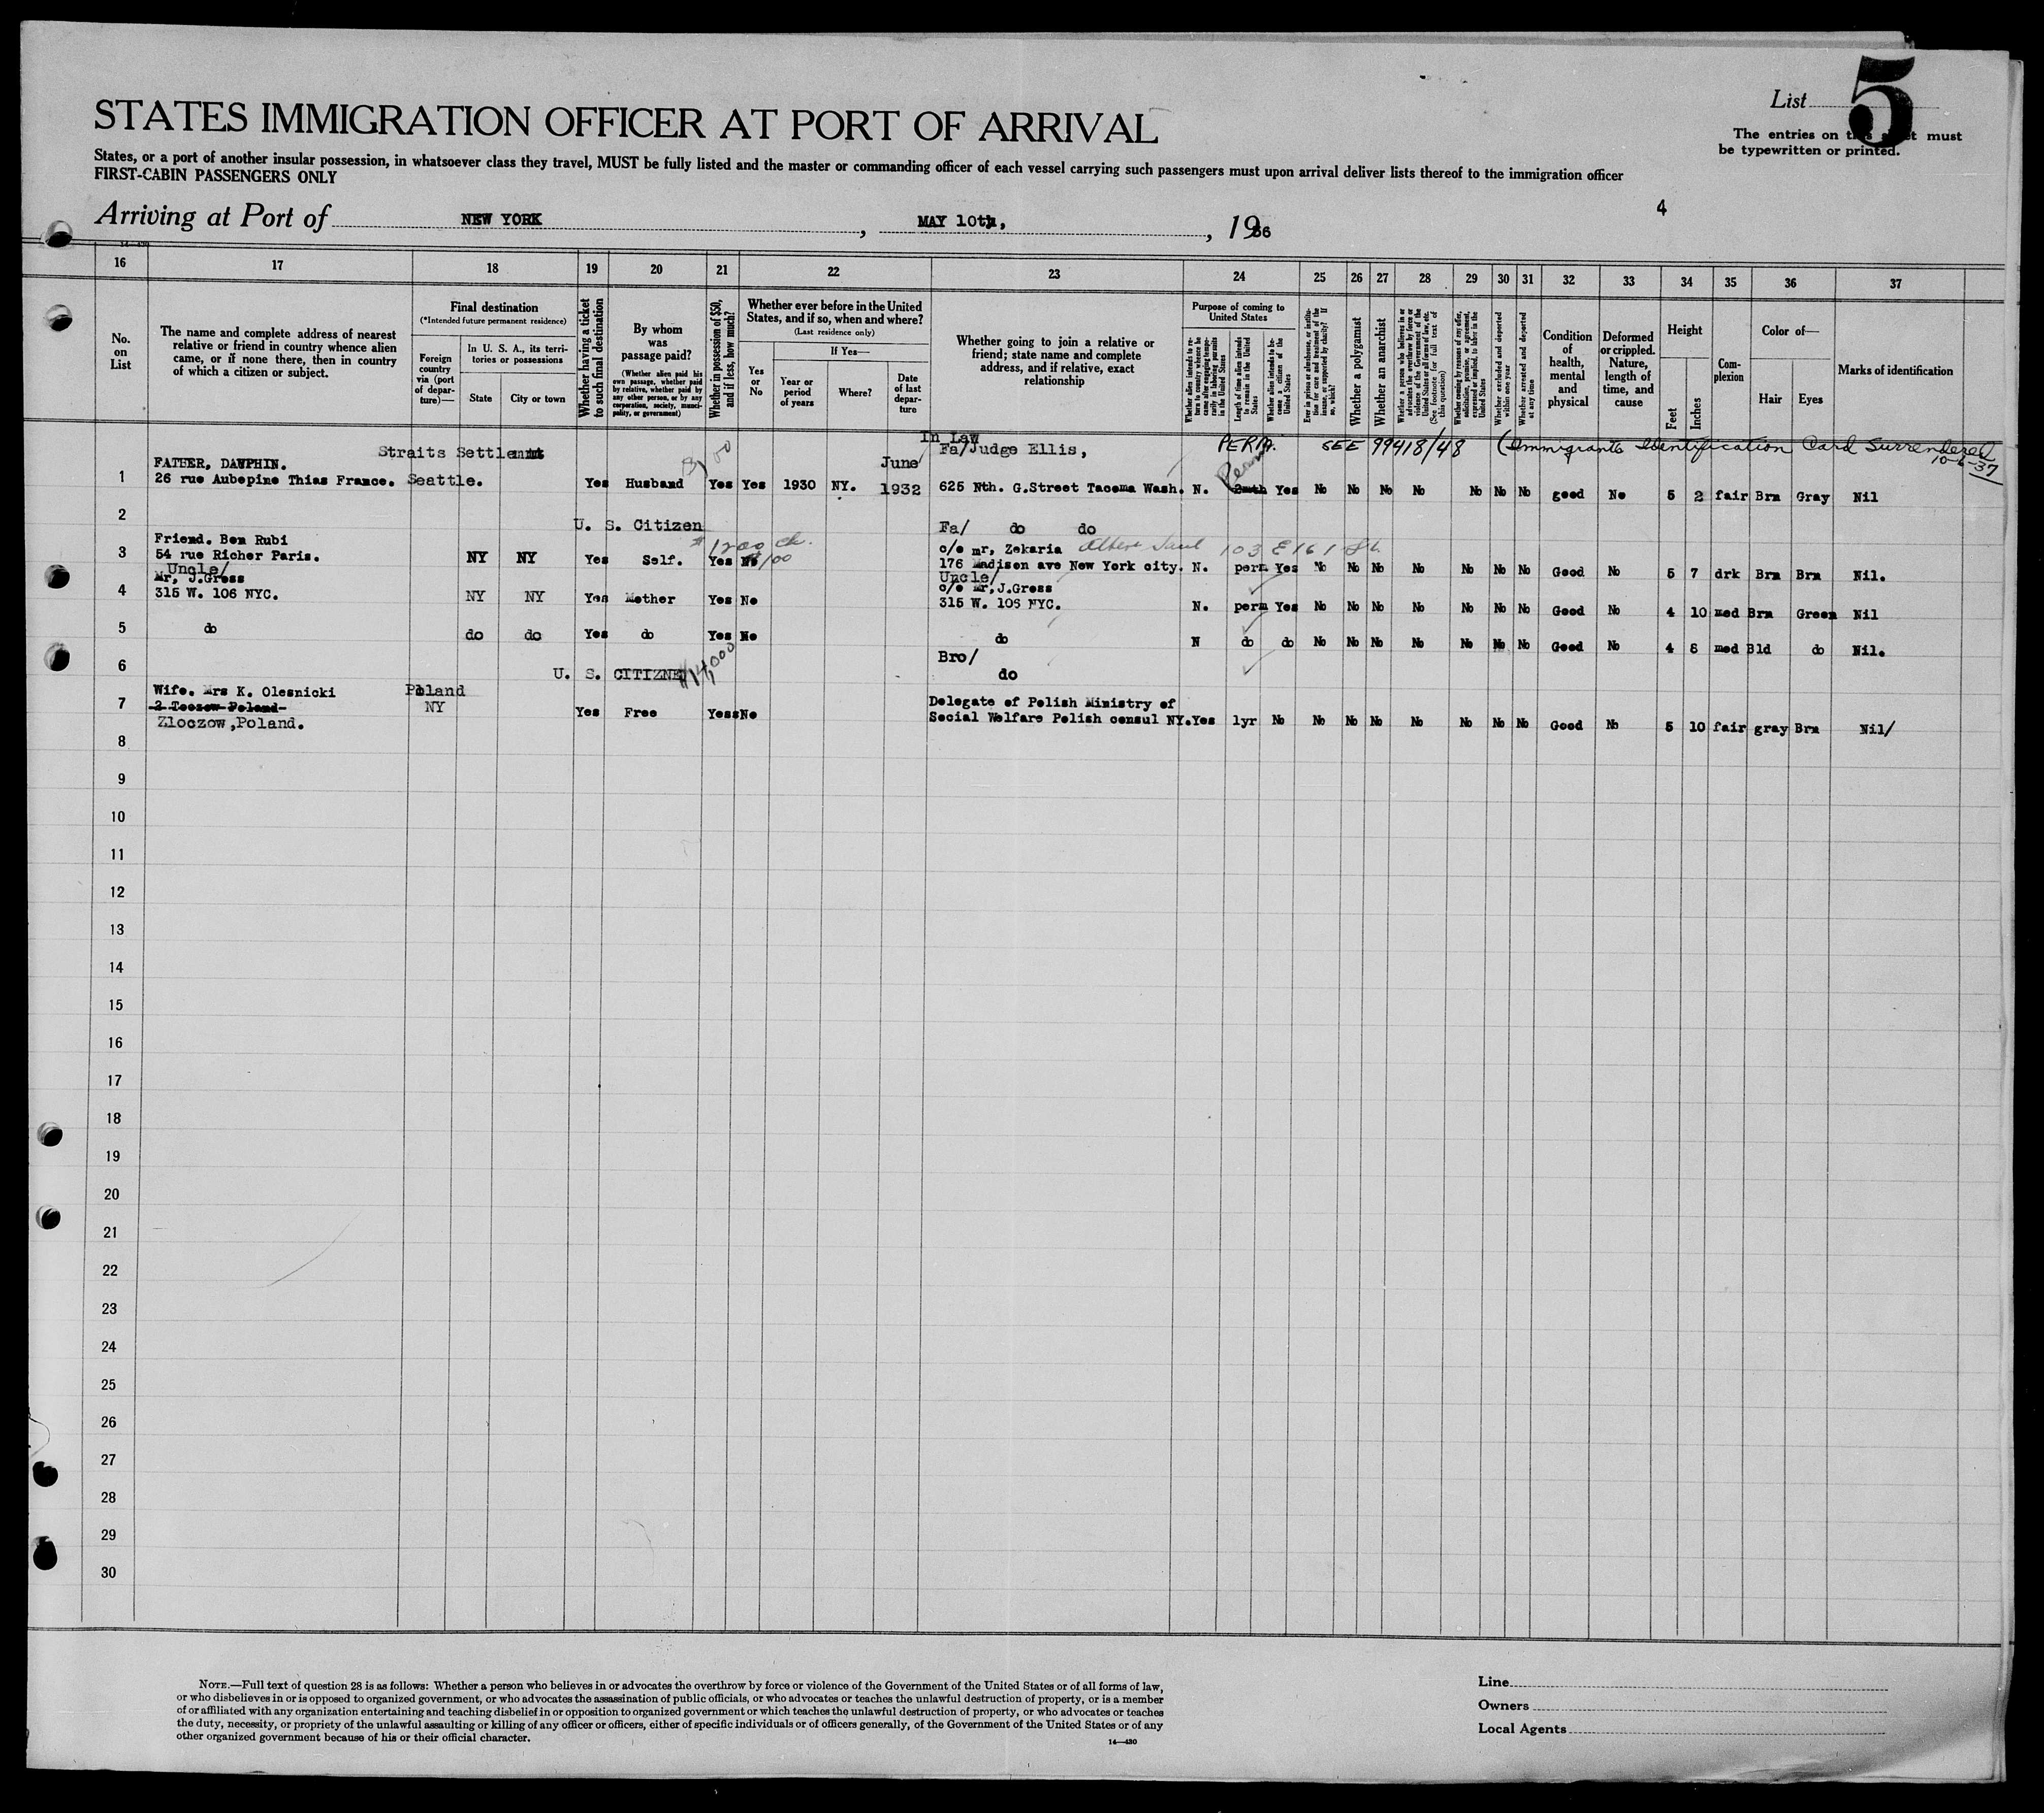 List 5
STATES IMMIGRATION OFFICER AT PORT OF ARRIVAL
The entries on this sheet must
be typewritten or printed.
States, or a port of another insular possession, in whatsoever class they travel, MUST be fully listed and the master or commanding officer of each vessel carrying such passengers must upon arrival deliver lists thereof to the immigration officer
FIRST-CABIN PASSENGERS ONLY
4
Arriving at Port of NEW YORK, MAY 10th, , 1936
16 17 18 19 20 21 22 23 24 25 26 27 28 29 30 31 32 33 34 35 36 37
No. on List
The name and complete address of nearest relative or friend in country whence alien came, or if none there, then in country of which a citizen or subject.
Final destination
(*Intended future permanent residence)
Foreign country via (port of departure)—
In U. S. A., its territories or possessions
State
City or town
Whether having a ticket to such final destination
By whom was passage paid?
(Whether alien paid his own passage, whether paid by relative, whether paid by any other person, or by any corporation, society, municipality, or government)
Whether in possession of $50, and if less, how much?
Whether ever before in the United States, and if so, when and where?
(Last residence only)
Yes or No
If Yes—
Year or period of years
Where?
Date of last departure
Whether going to join a relative or friend; state name and complete address, and if relative, exact relationship
Purpose of coming to United States
Whether alien intends to return to country whence he came after engaging temporarily in laboring pursuits in the United States
Length of time alien intends to remain in the United States
Whether alien intends to become a citizen of the United States
Ever in prison or almshouse, or institution for care and treatment of the insane, or supported by charity? If so, which?
Whether a polygamist
Whether an anarchist
Whether a person who believes in or advocates the overthrow by force or violence of the Government of the United States or all forms of law, etc. (See footnote for full text of this question)
Whether coming by reason of any offer, solicitation, promise, or agreement, expressed or implied, to labor in the United States
Whether excluded and deported within one year
Whether arrested and deported at any time
Condition of health, mental and physical
Deformed or crippled. Nature, length of time, and cause
Height
Feet
Inches
Complexion
Color of—
Hair
Eyes
Marks of identification
Straits Settlemnt In Law Fa/Judge Ellis, PERM. SEE 99418/48 (Immigrants Identification Card Surrendered 10-6-37
FATHER, DAUPHIN. June
1 26 rue Aubepine Thias France. Seattle. Yes Husband Yes Yes 1930 NY. 1932 625 Nth. G.Street Tacoma Wash. N. Perm Yes No No No No No No No good No 5 2 fair Brn Gray Nil
2 U. S. Citizen Fa/ do do
Friend. Ben Rubi $1200 ch. c/o mr, Zekaria 103 E 161 St.
3 54 rue Richer Paris. NY NY Yes Self. Yes No $100 176 Madison ave New York city. N. perm Yes No No No No No No No Good No 5 7 drk Brn Brn Nil.
Uncle/ Uncle/
Mr, J.Gross c/o Mr,J.Gross
4 315 W. 106 NYC. NY NY Yes Mother Yes No 315 W. 106 NYC. N. perm Yes No No No No No No No Good No 4 10 med Brn Green Nil
5 do do do Yes do Yes No do N do do No No No No No No No Good No 4 8 med Bld do Nil.
6 U. S. CITIZNE $14,000 Bro/ do
Wife. Mrs K. Olesnicki Poland Delegate of Polish Ministry of
7 2 Toczow Poland NY Yes Free Yes No Social Welfare Polish consul NY. Yes 1yr No No No No No No No No Good No 5 10 fair gray Brn Nil/
Zloczow,Poland.
8
9
10
11
12
13
14
15
16
17
18
19
20
21
22
23
24
25
26
27
28
29
30
NOTE.—Full text of question 28 is as follows: Whether a person who believes in or advocates the overthrow by force or violence of the Government of the United States or of all forms of law,
or who disbelieves in or is opposed to organized government, or who advocates the assassination of public officials, or who advocates or teaches the unlawful destruction of property, or is a member
of or affiliated with any organization entertaining and teaching disbelief in or opposition to organized government or which teaches the unlawful destruction of property, or who advocates or teaches
the duty, necessity, or propriety of the unlawful assaulting or killing of any officer or officers, either of specific individuals or of officers generally, of the Government of the United States or of any
other organized government because of his or their official character.
14—430
Line
Owners
Local Agents